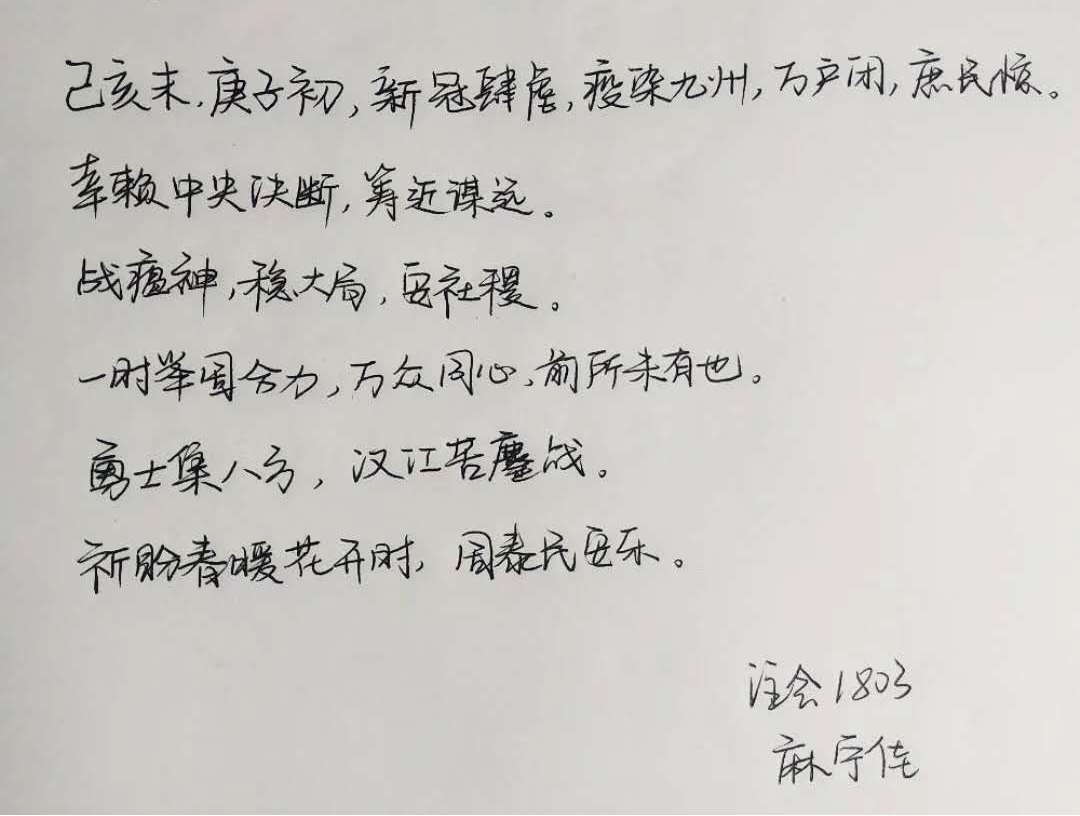 己亥末,庚子初,新冠肆虐,疫染九州,万户闭,庶民惊。
幸赖中央决断,筹近谋远。
战瘟神,稳大局,安社稷。
一时举国合力,万众同心,前所未有也。
勇士集八方,汉江苦鏖战。
祈盼春暖花开时,国泰民安乐。
注会1803
麻宁佳